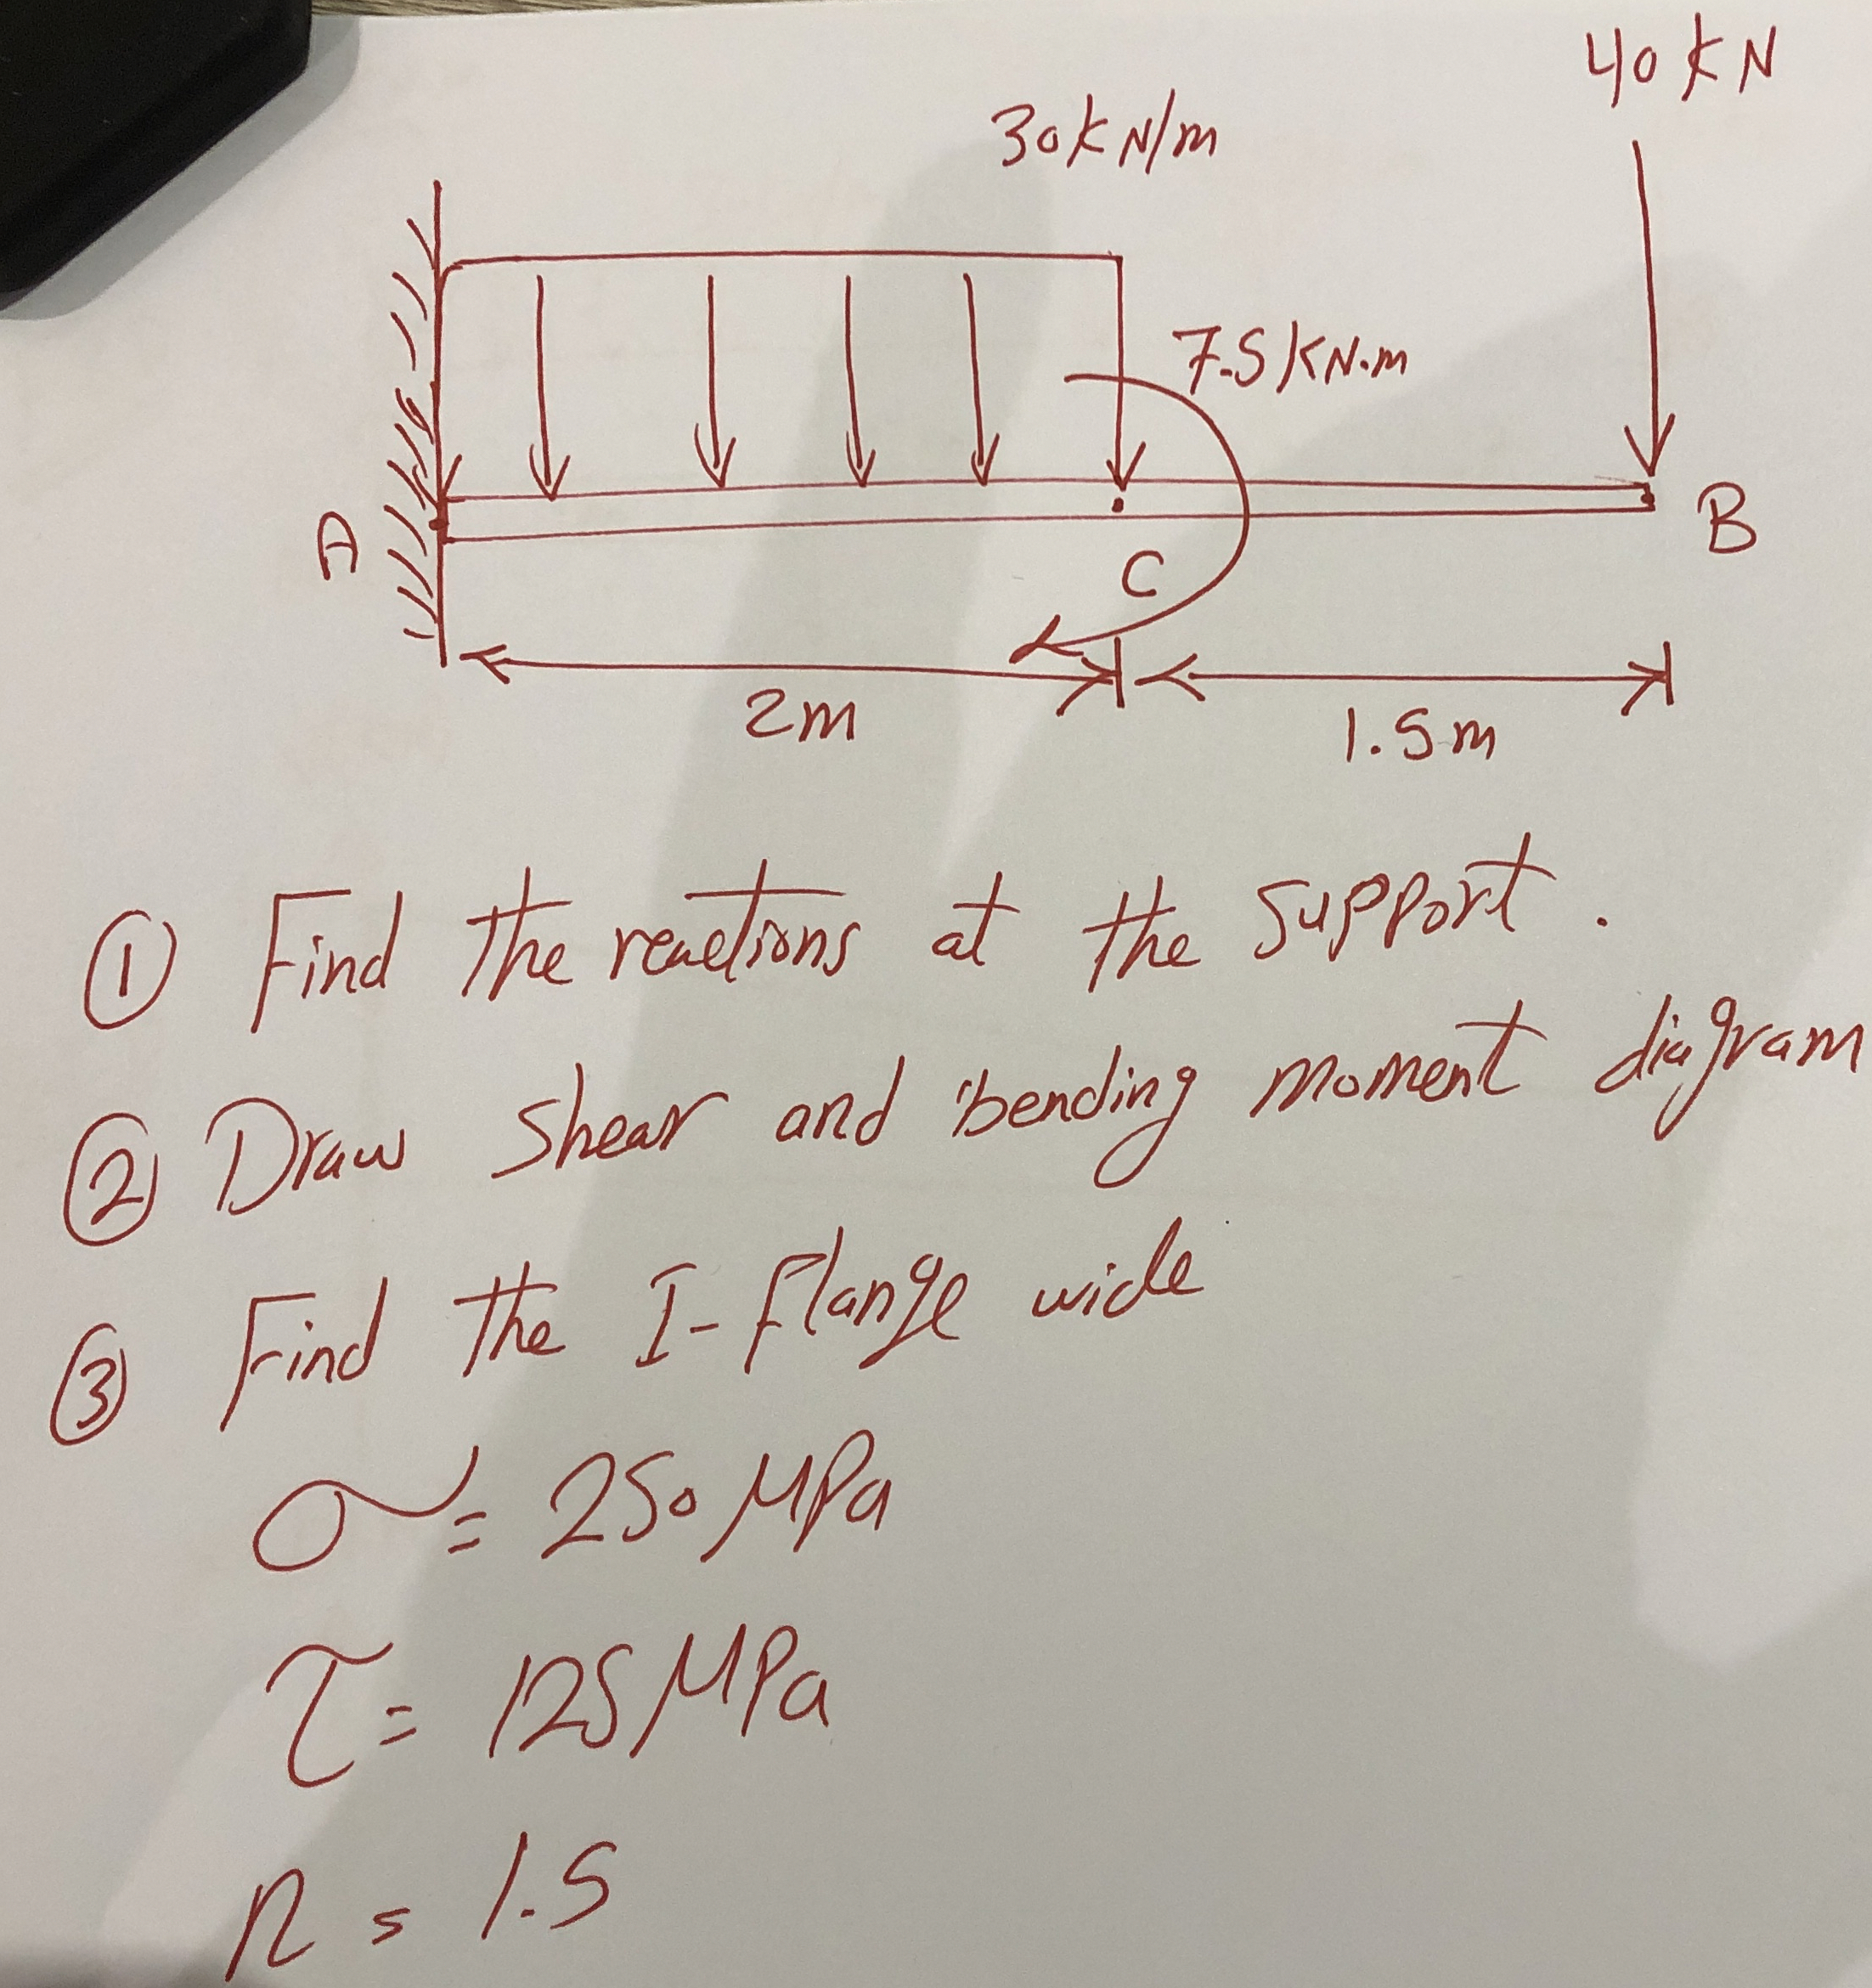 40 kN
30kN/m
7.5 KN.m
A
C
B
2m
1.5m
① Find the reactions at the support.
② Draw shear and bending moment diagram
③ Find the I-flange wide
σ = 250 MPa
τ = 125 MPa
n = 1.5